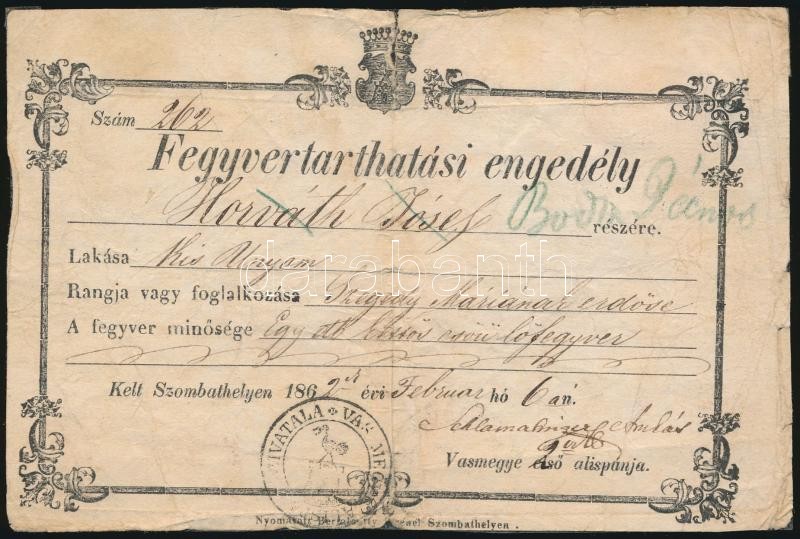 Szám 262
Fegyvertarthatási engedély
Horváth Jósef Bodor János részére.
Lakása Kis Unyom
Rangja vagy foglalkozása Szegedy Máriának erdőse
A fegyver minősége Egy db kettős csöü lőfegyver
Kelt Szombathelyen 1862 évi Februar hó 6án
András
Vasmegye első alispánja.
IVATALA * VAS ME
Szombathelyen.
darabanth